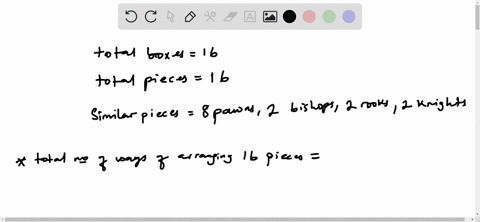 total boxes = 16
total pieces = 16
Similar pieces = 8 pawns, 2 bishops, 2 rooks, 2 knights
* total no of ways of arranging 16 pieces =